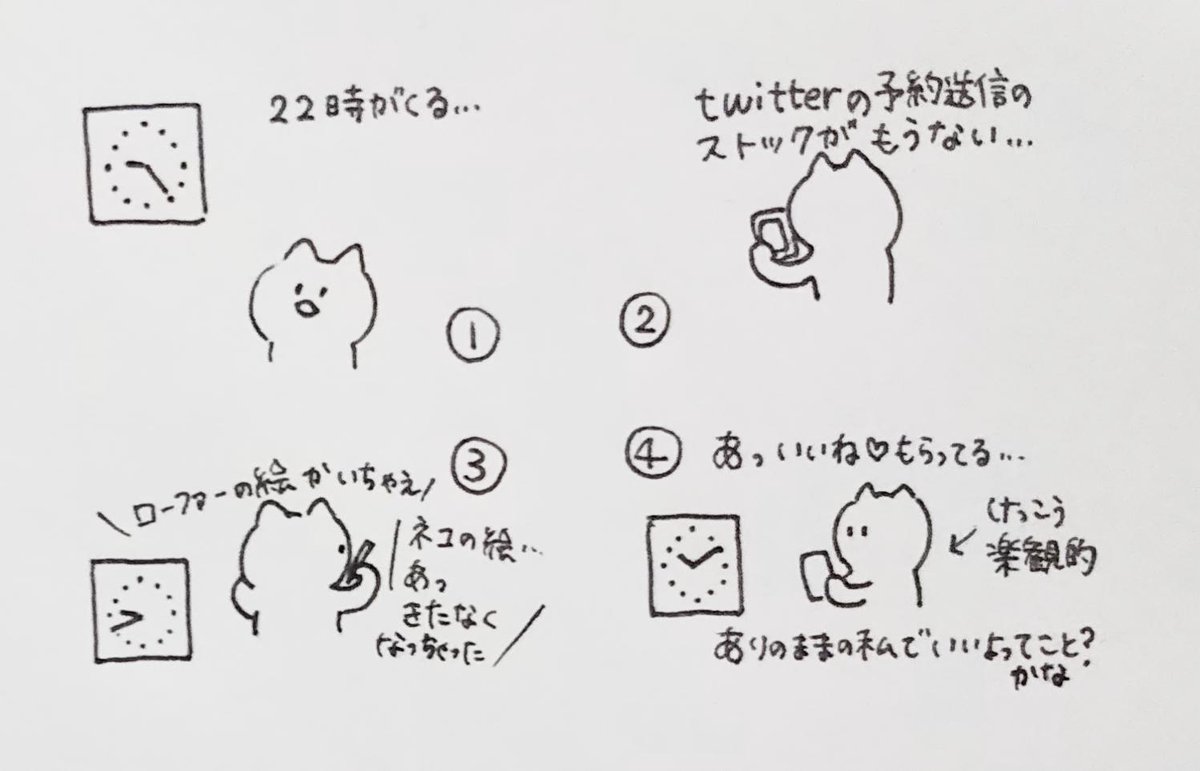 22時がくる…
①
twitterの予約送信の
ストックがもうない…
②
③
ローファーの絵かいちゃえ
ネコの絵…
あっ
きたなく
なっちゃった
④
あっいいね♡もらってる…
けっこう
楽観的
ありのままの私でいいよってこと?
かな